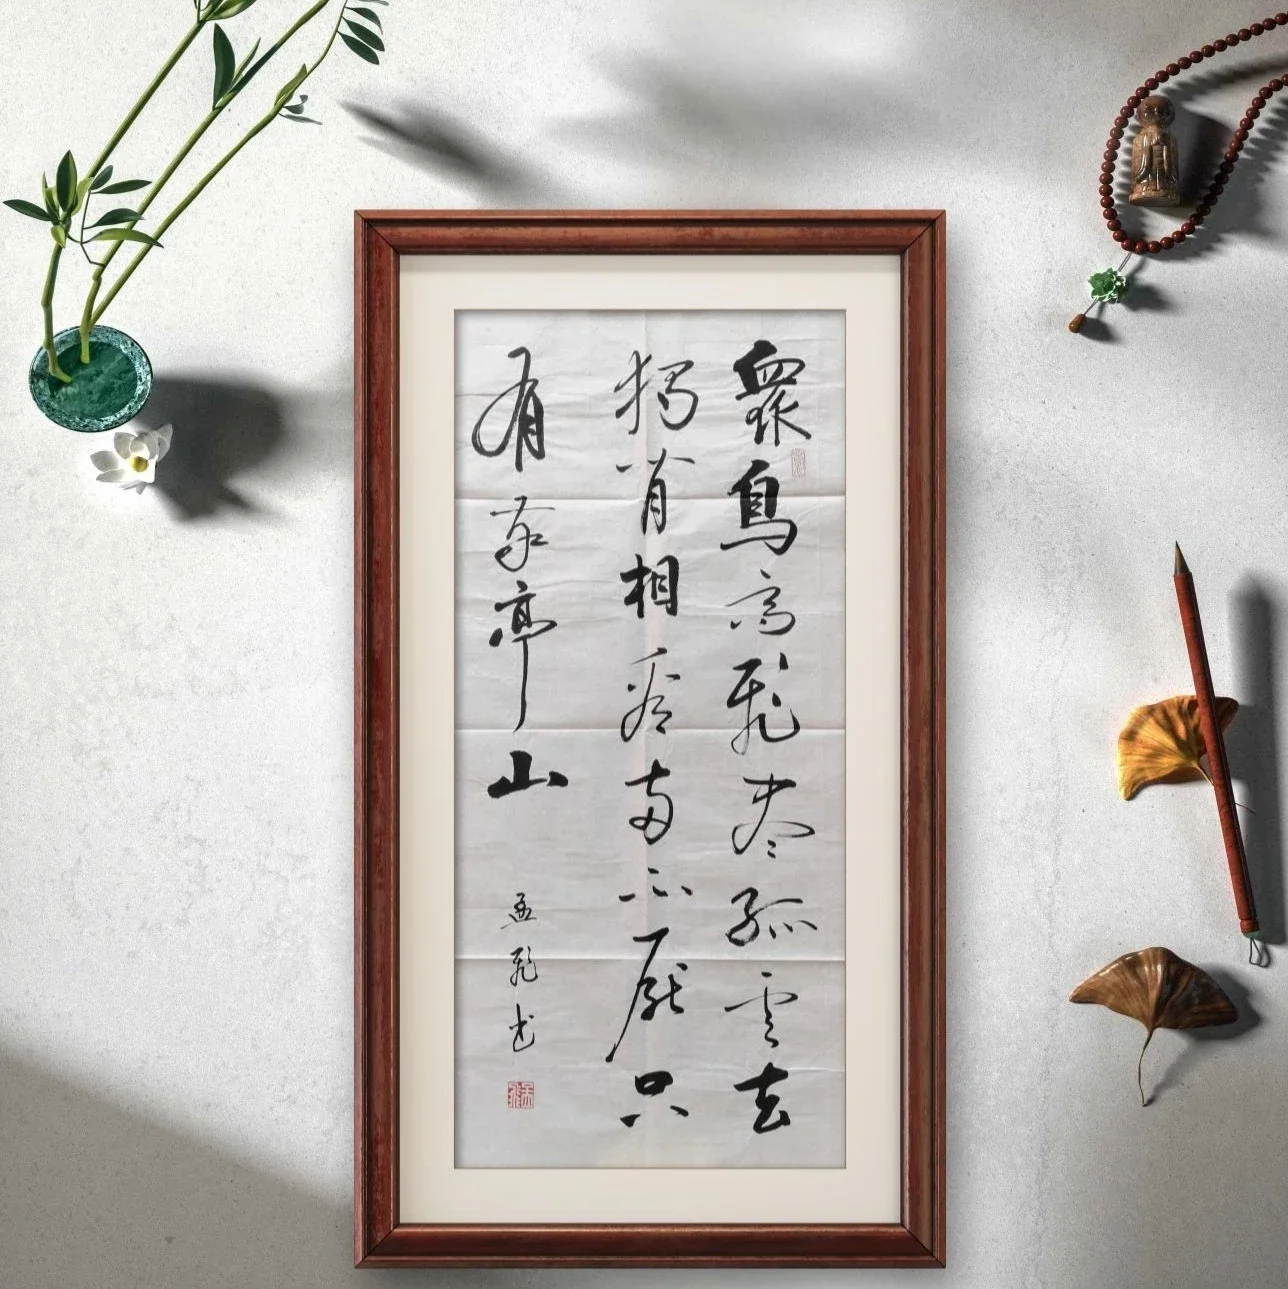 衆鳥高飛盡孤雲去
獨閒相看兩不厭只
有敬亭山
孟飛书